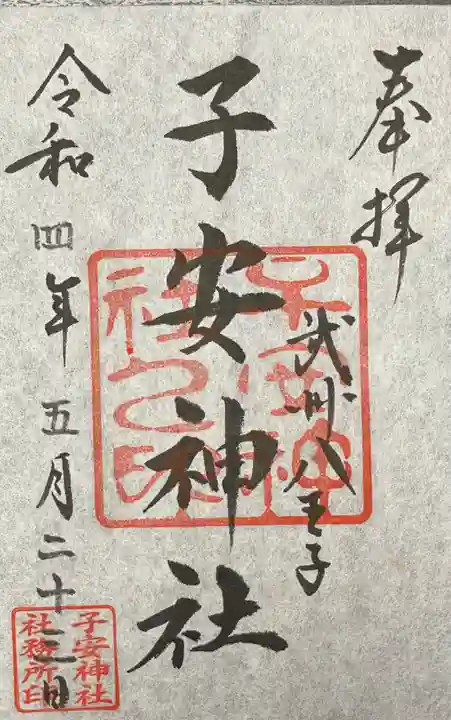 奉拝
武州八王子
子安神社
令和四年五月二十二日
子安神社
社務所印
子安神
社之印